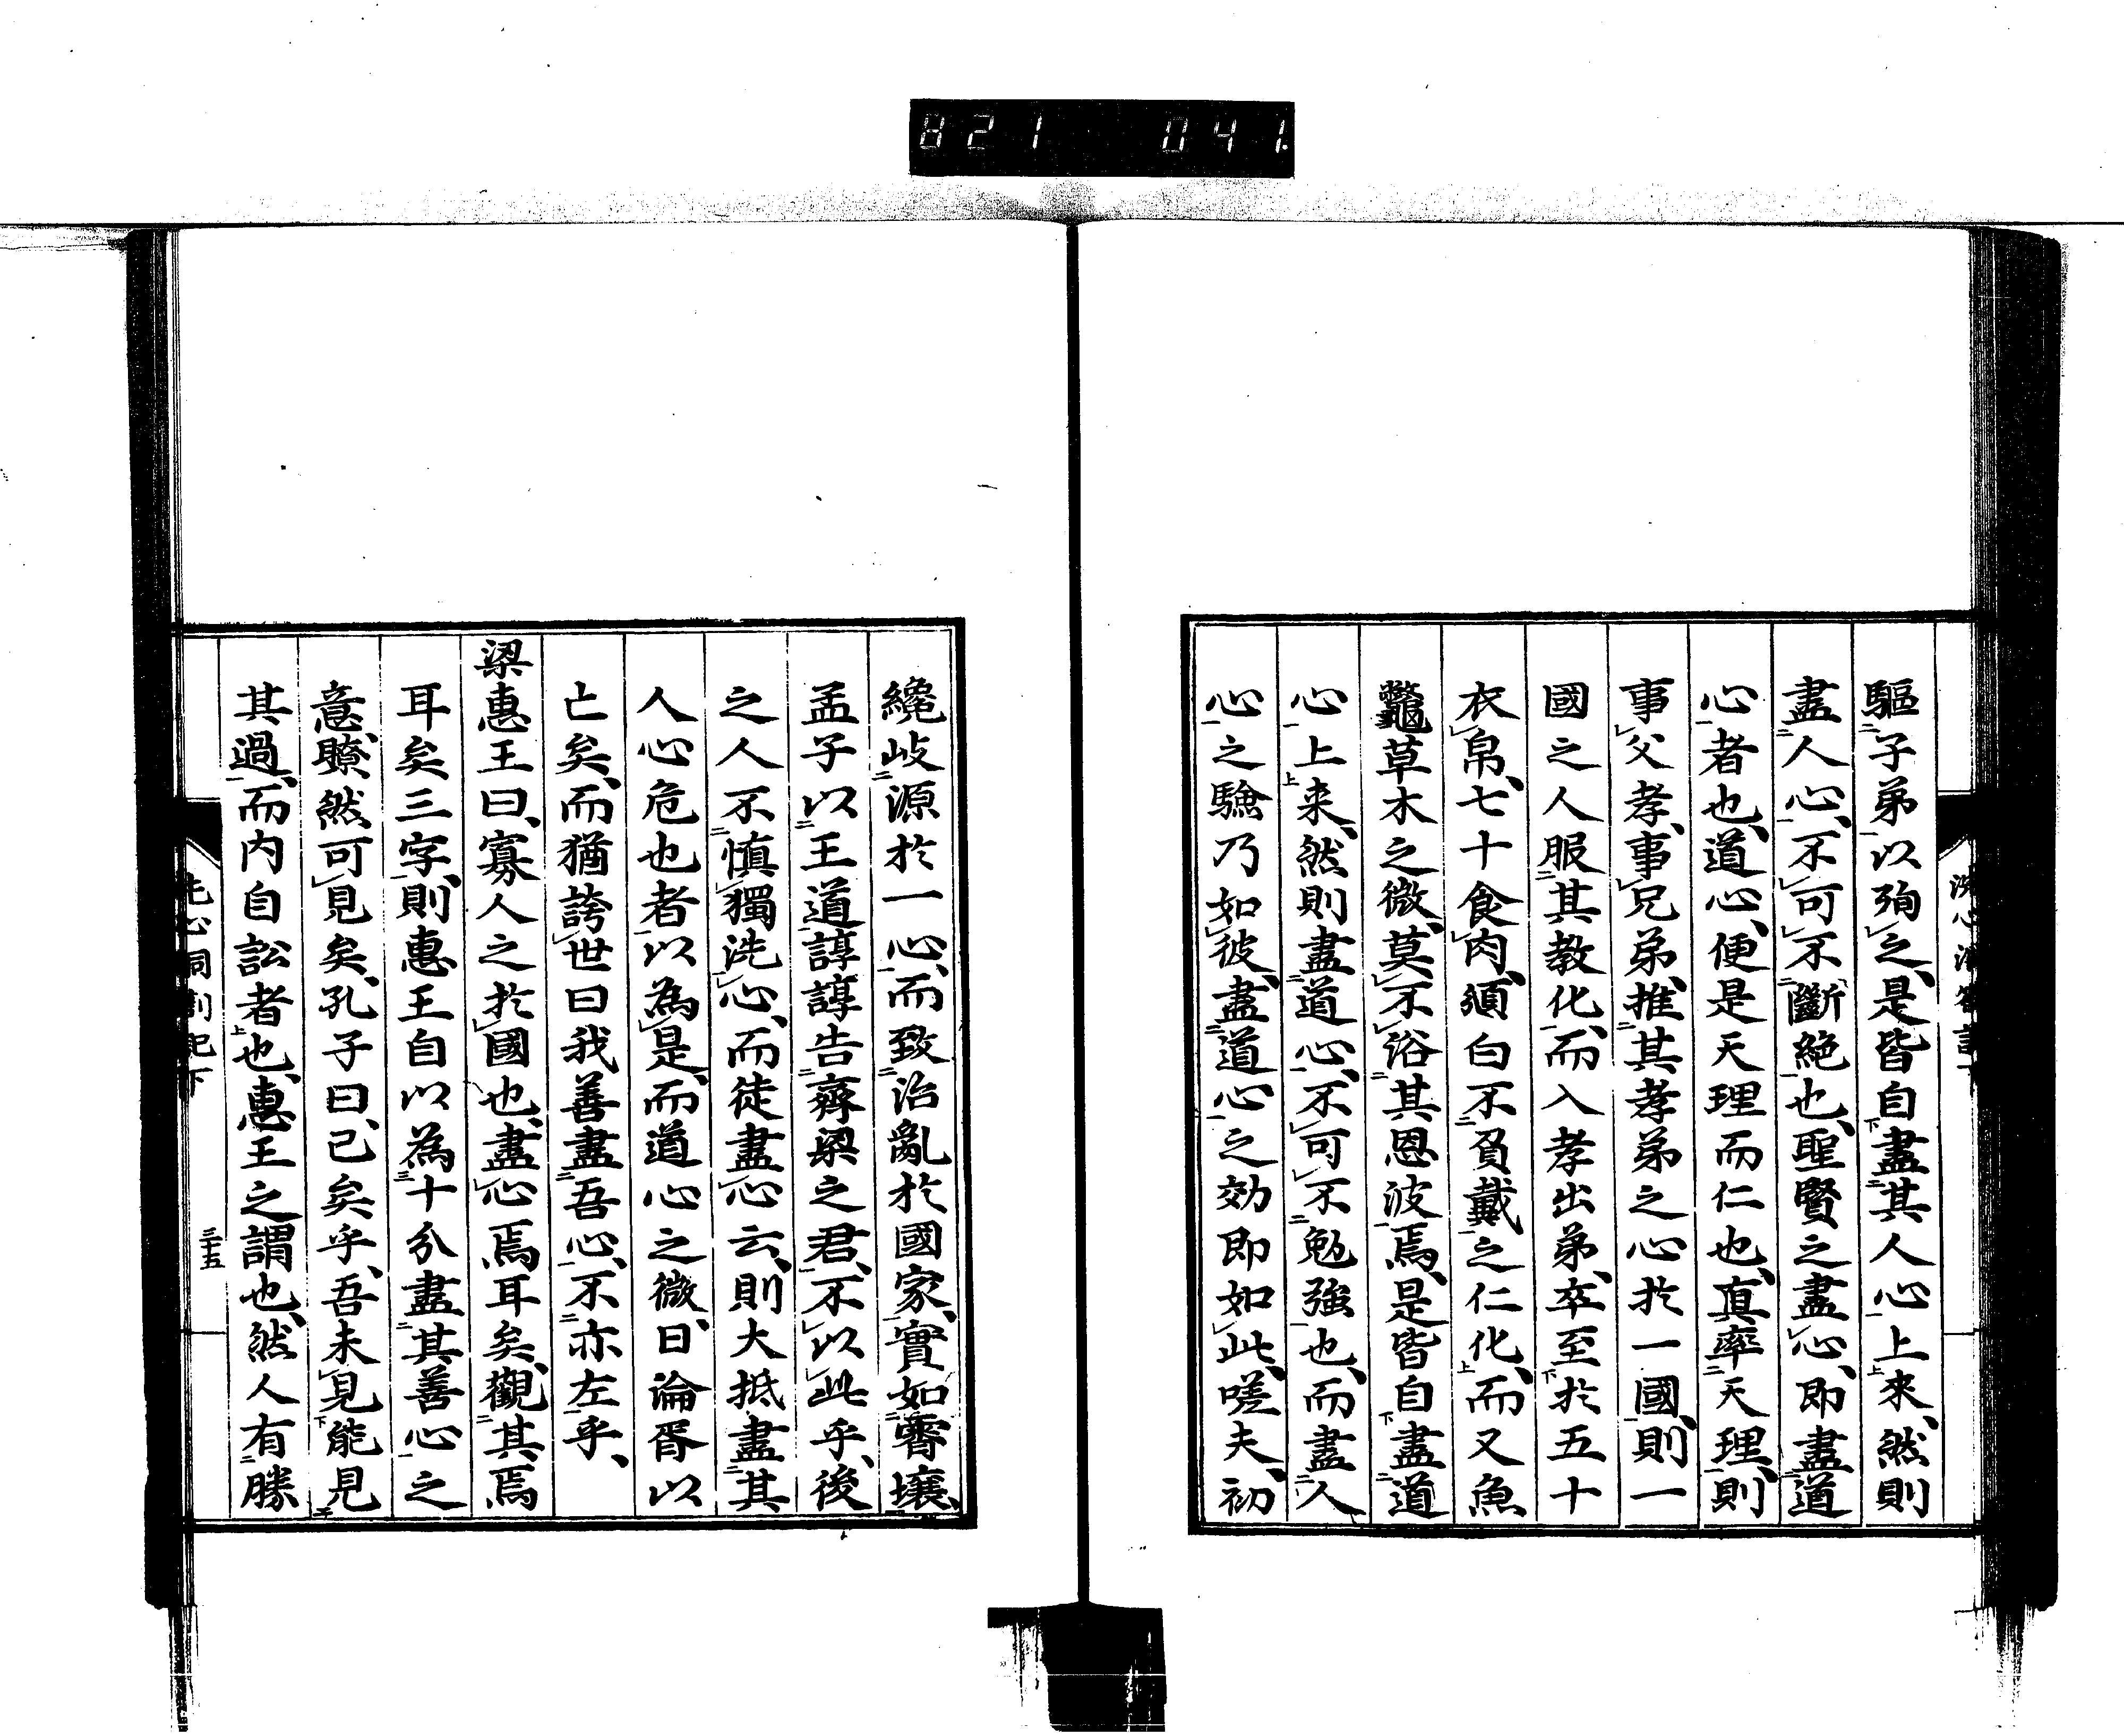 821 041.
驅子弟以殉之、是皆自盡其人心上來、然則
盡人心、不可不斷絕也、聖賢之盡心、即盡道
心者也、道心、便是天理而仁也、眞率天理、則
事父孝、事兄弟、推其孝弟之心於一國、則一
國之人服其教化、而入孝出弟、卒至於五十
衣帛、七十食肉、頒白不負戴之仁化、而又魚
鼈草木之微、莫不浴其恩波焉、是皆自盡道
心上来、然則盡道心、不可不勉強也、而盡人
心之驗乃如彼、盡道心之効即如此、嗟夫、初
纔岐源於一心、而致治亂於國家、實如霄壤、
孟子以王道諄諄告齊梁之君、不以此乎、後
之人不愼獨洗心、而徒盡心云、則大抵盡其
人心危也者、以為是、而道心之微、日淪胥以
亡矣、而猶誇世曰我善盡吾心、不亦左乎、
梁惠王曰、寡人之於國也、盡心焉耳矣、觀其焉
耳矣三字、則惠王自以為十分盡其善心之
意、瞭然可見矣、孔子曰、已矣乎、吾未見能見
其過、而内自訟者也、惠王之謂也、然人有勝
心洞劄記下
三十五